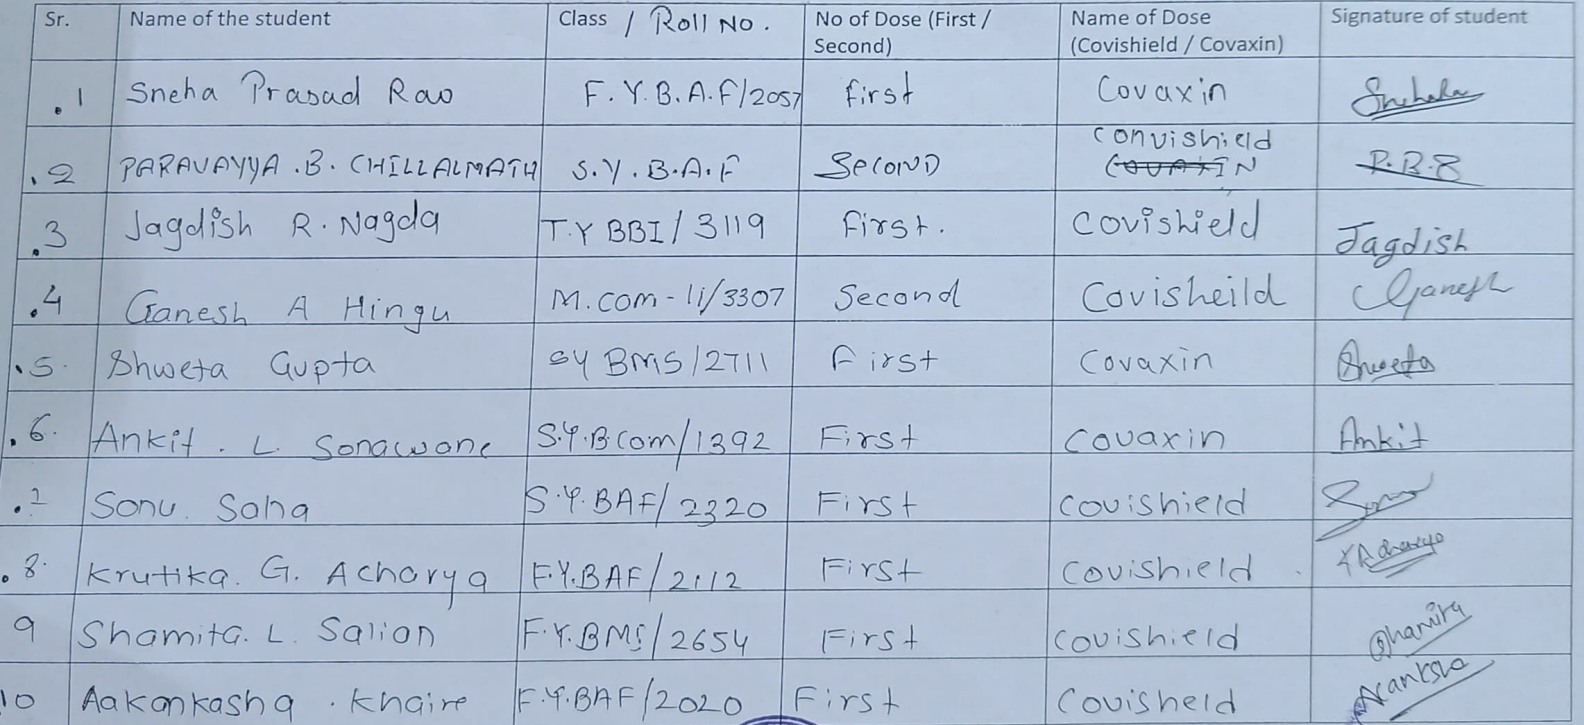 Sr. Name of the student Class / Roll No. No of Dose (First / Second) Name of Dose (Covishield / Covaxin) Signature of student
.1 Sneha Prasad Rao F.Y.B.A.F/2057 first Covaxin
.2 PARAVAYYA.B.CHILLALMATH S.Y.B.A.F SecOND Convishield
.3 Jagdish R. Nagda T.Y BBI/3119 First. Covishield Jagdish
.4 Ganesh A Hingu M.com-ii/3307 Second Covisheild Ganesh
.5. Shweta Gupta SY BMS/2711 First Covaxin Shweta
.6. Ankit. L. Sonawane S.Y.B.com/1392 First Covaxin Ankit
.7 Sonu. Saha S.Y.BAF/2320 First Covishield
.8. Krutika. G. Acharya F.Y.BAF/2112 First Covishield. KAcharya
9 Shamita. L. Salian F.Y.BMS/2654 First Covishield Shamita
10 Aakankasha. Khaire F.Y.BAF/2020 First Covisheld